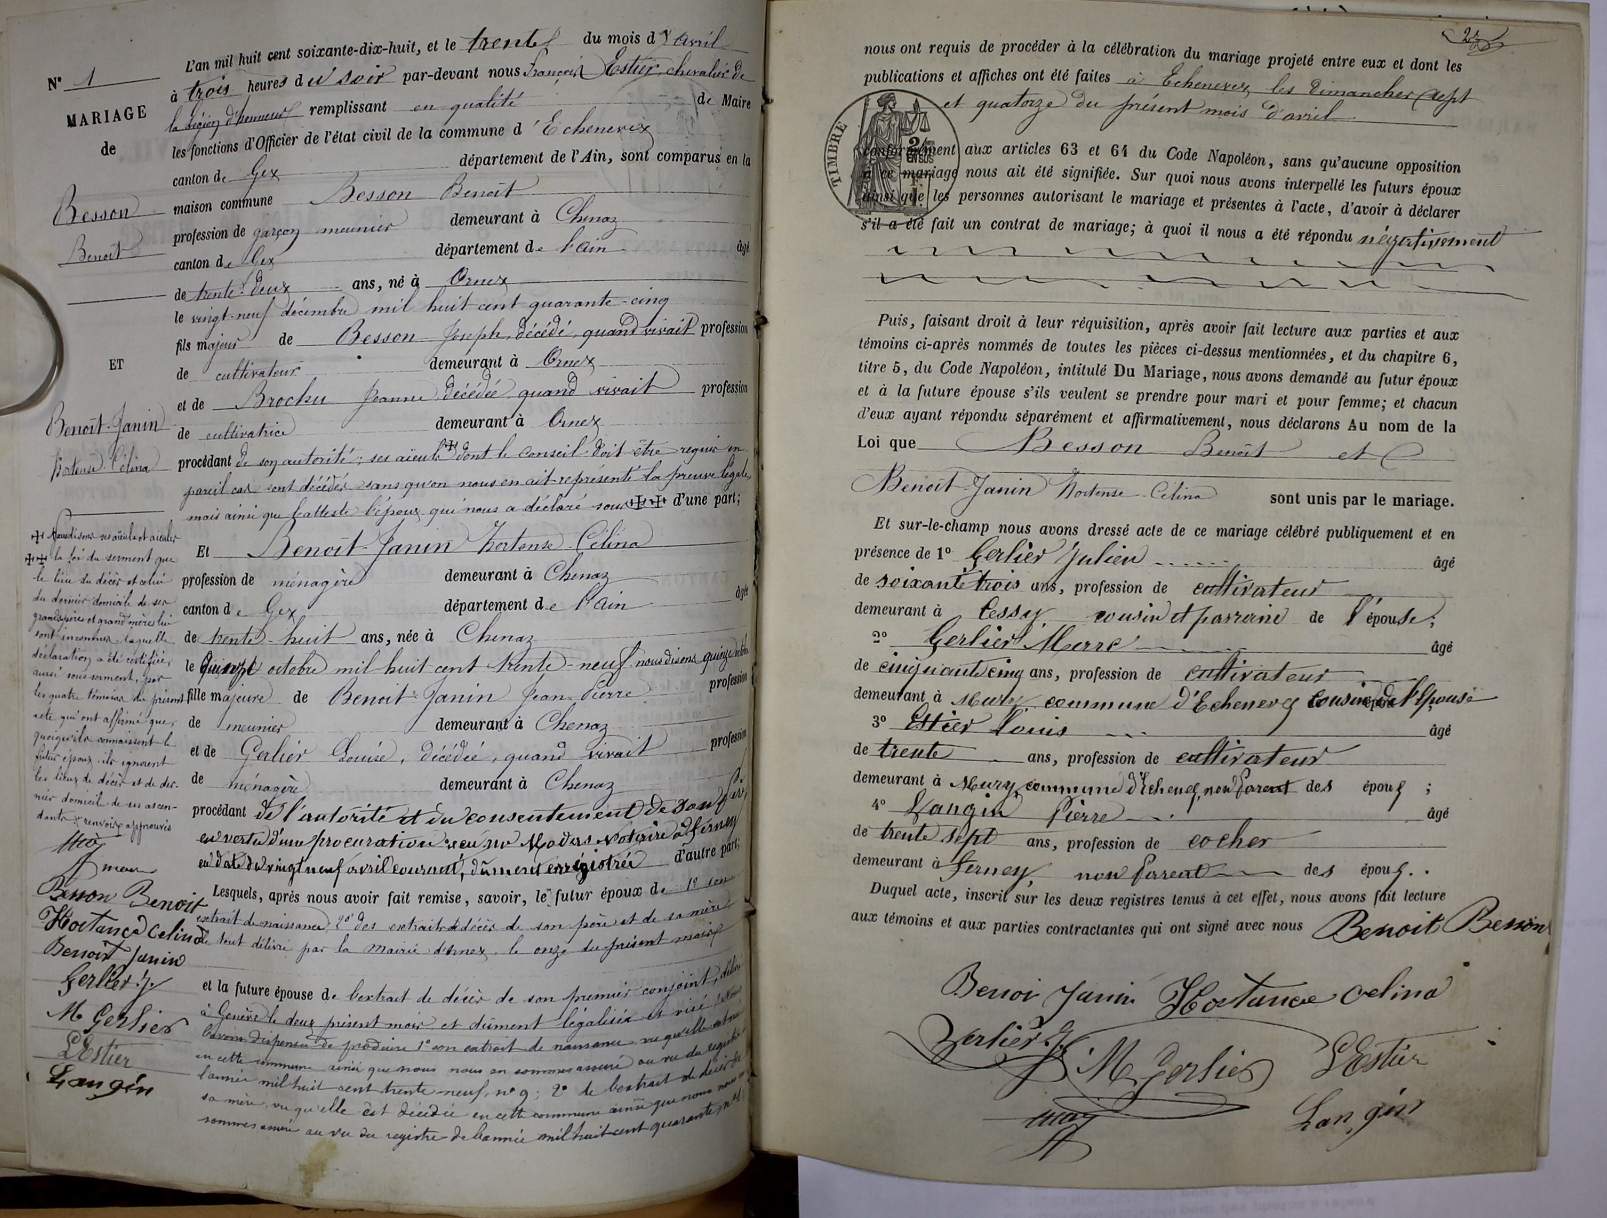 N° 1
MARIAGE
de
Besson
Benoit
ET
Benoît-Janin
Hortense Célina
L'an mil huit cent soixante-dix-huit, et le trente du mois d'avril
à trois heures du soir par-devant nous François Estier, chevalier de
la légion d'honneur remplissant en qualité de Maire
les fonctions d'Officier de l'état civil de la commune d'Echenevex
canton de Gex département de l'Ain, sont comparus en la
maison commune Besson Benoît
profession de garçon meunier demeurant à Chenaz
canton de Gex département de l'ain âgé
de trente-deux ans, né à Ornex
le vingt-neuf décembre mil huit cent quarante-cinq
fils majeur de Besson Joseph, décédé, quand vivait profession
de cultivateur demeurant à Ornex
et de Brochu Jeanne décédée quand vivait profession
de cultivatrice demeurant à Ornex
procédant de son autorité; ses aïeuls dont le conseil doit être requis en
pareil cas sont décédés sans qu'on nous en ait représenté la preuve légale,
mais ainsi que l'atteste l'époux qui nous a déclaré sous d'une part;
Et Benoît-Janin Hortense-Célina
profession de ménagère demeurant à Chenaz
canton de Gex département de l'ain âgée
de trente-huit ans, née à Chenaz
le quinze octobre mil huit cent trente-neuf nous disons quinze
fille majeure de Benoît-Janin Jean-Pierre profession
de meunier demeurant à Chenaz
et de Gerlier Louise, décédée, quand vivait profession
de ménagère demeurant à Chenaz
procédant de l'autorité et du consentement de son père,
en vertu d'une procuration reçue notaire à Ferney
en date du vingt neuf avril courant, dûment enregistrée d'autre part;
Lesquels, après nous avoir fait remise, savoir, le futur époux de 1° son
extrait de naissance, 2° des extraits de décès de son père et de sa mère
le tout délivré par la mairie d'Ornex le onze du présent mois
et la future épouse de l'extrait de décès de son premier conjoint, délivré
à Genève le deux présent mois et dûment légalisé et visé
dispensée de produire 1° son extrait de naissance vu qu'elle est née
en cette commune ainsi que nous nous en sommes assuré au vu du registre de
l'année mil huit cent trente-neuf, n° 9; 2° de l'extrait de décès de
sa mère, vu qu'elle est décédée en cette commune ainsi que nous nous
sommes assuré au vu du registre de l'année mil huit cent quarante
Nous disons ses aïeuls et aïeules
la foi du serment que
le lieu du décès et celui
du dernier domicile de ses
grands-pères et grand'mères lui
sont inconnus, laquelle
déclaration a été certifiée,
aussi sous serment, par
les quatre témoins du présent
acte qui ont affirmé que,
quoiqu'ils connaissent le
futur époux, ils ignorent
les lieux de décès et de der-
nier domicile de ses ascen-
dants renvois approuvés
Besson Benoit
Hortance Celina
Benoit Janin
Gerlier J.
M Gerlier
L Estier
Langin
nous ont requis de procéder à la célébration du mariage projeté entre eux et dont les
publications et affiches ont été faites à Echenevex les dimanches sept
et quatorze du présent mois d'avril
TIMBRE
conformément aux articles 63 et 64 du Code Napoléon, sans qu'aucune opposition
à ce mariage nous ait été signifiée. Sur quoi nous avons interpellé les futurs époux
ainsi que les personnes autorisant le mariage et présentes à l'acte, d'avoir à déclarer
s'il a été fait un contrat de mariage; à quoi il nous a été répondu négativement
Puis, faisant droit à leur réquisition, après avoir fait lecture aux parties et aux
témoins ci-après nommés de toutes les pièces ci-dessus mentionnées, et du chapitre 6,
titre 5, du Code Napoléon, intitulé Du Mariage, nous avons demandé au futur époux
et à la future épouse s'ils veulent se prendre pour mari et pour femme; et chacun
d'eux ayant répondu séparément et affirmativement, nous déclarons Au nom de la
Loi que Besson Benoît et
Benoît-Janin Hortense-Celina sont unis par le mariage.
Et sur-le-champ nous avons dressé acte de ce mariage célébré publiquement et en
présence de 1° Gerlier Julien âgé
de soixante trois ans, profession de cultivateur
demeurant à Cessy cousin et parrain de l'épouse;
2° Gerlier Marre âgé
de cinquante cinq ans, profession de cultivateur
demeurant à Mury commune d'Echenevex cousin de l'Epouse
3° Estier Louis âgé
de trente ans, profession de cultivateur
demeurant à Mury, commune d'Echenevex, non Parent des époux;
4° Langin Pierre âgé
de trente sept ans, profession de cocher
demeurant à Ferney, non Parent des époux.
Duquel acte, inscrit sur les deux registres tenus à cet effet, nous avons fait lecture
aux témoins et aux parties contractantes qui ont signé avec nous Benoit Besson
Benoi Janin Hortance Celina
Gerlier J. M Gerlier L Estier
Langin